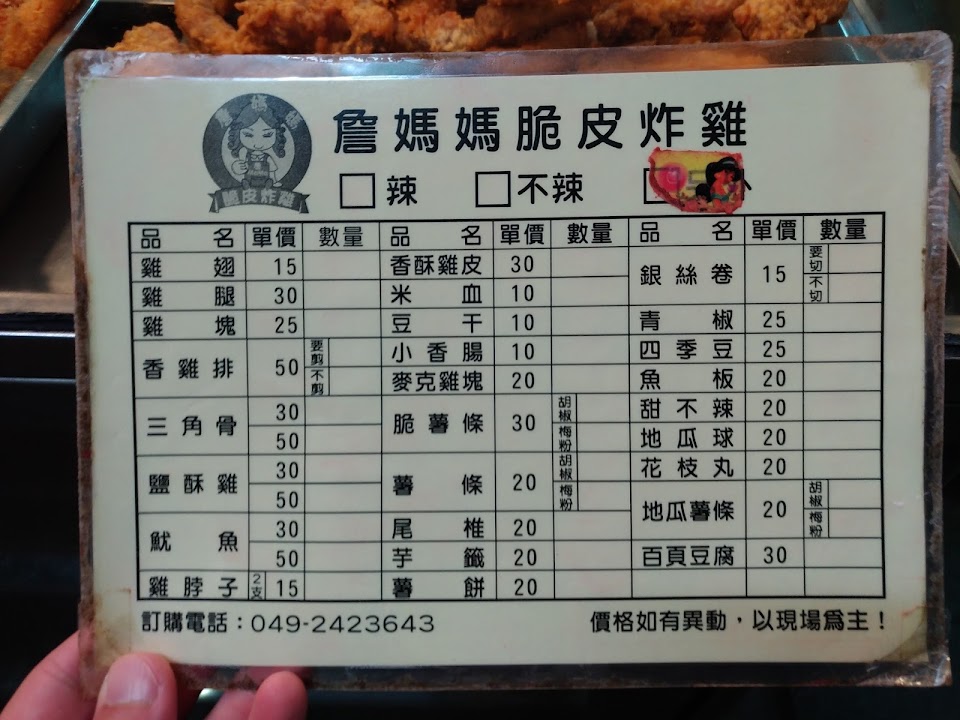 詹媽媽
脆皮炸雞
詹媽媽脆皮炸雞
辣 不辣
品名 單價 數量 品名 單價 數量 品名 單價 數量
雞翅 15 香酥雞皮 30 銀絲卷 15 要切 不切
雞腿 30 米血 10
雞塊 25 豆干 10 青椒 25
香雞排 50 要剪 不剪 小香腸 10 四季豆 25
麥克雞塊 20 魚板 20
三角骨 30 50 脆薯條 30 胡椒 梅粉 甜不辣 20
地瓜球 20
鹽酥雞 30 50 薯條 20 胡椒 梅粉 花枝丸 20
地瓜薯條 20 胡椒 梅粉
魷魚 30 50 尾椎 20
芋籤 20 百頁豆腐 30
雞脖子 2支 15 薯餅 20
訂購電話：049-2423643 價格如有異動，以現場為主！